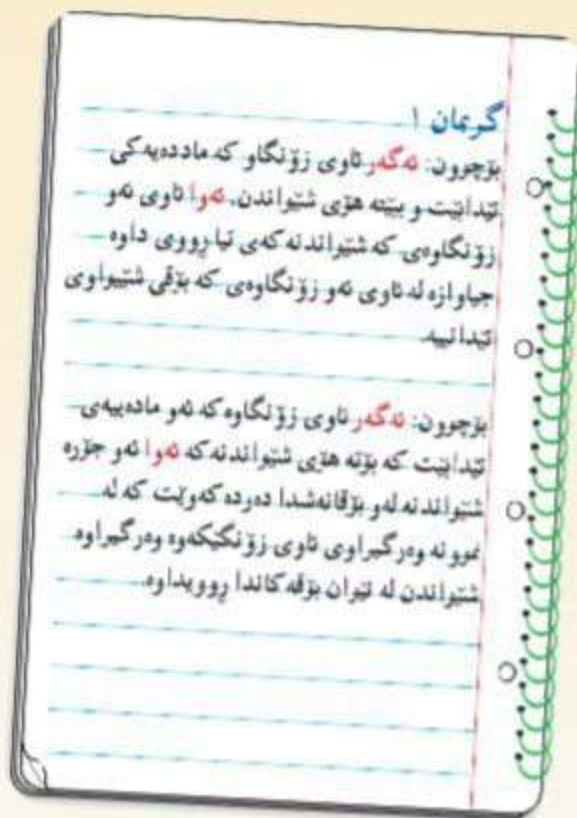 گریمان ١
بۆچوون: ئەگەر ئاوی زۆنگاو کە ماددەیەکی
تێدابێت و ببێتە هۆی شێواندن. ئەوا ئاوی ئەو
زۆنگاوەی کە شێواندنەکەی تیا ڕووی داوە
جیاوازە لە ئاوی ئەو زۆنگاوەی کە بۆقی شێیواوی
تێدا نییە.
بۆچوون: ئەگەر ئاوی زۆنگاوەکە ئەو مادەییەی
تێدابێت کە بۆتە هۆی شێواندنەکە ئەوا ئەو جۆرە
شێواندنە لەو بۆقانەشدا دەردەکەوێت کە لە
نموونە وەرگیراوی ئاوی زۆنگێکەوە وەرگیراوە
شێواندن لە نێوان بۆقەکاندا ڕوویداوە.